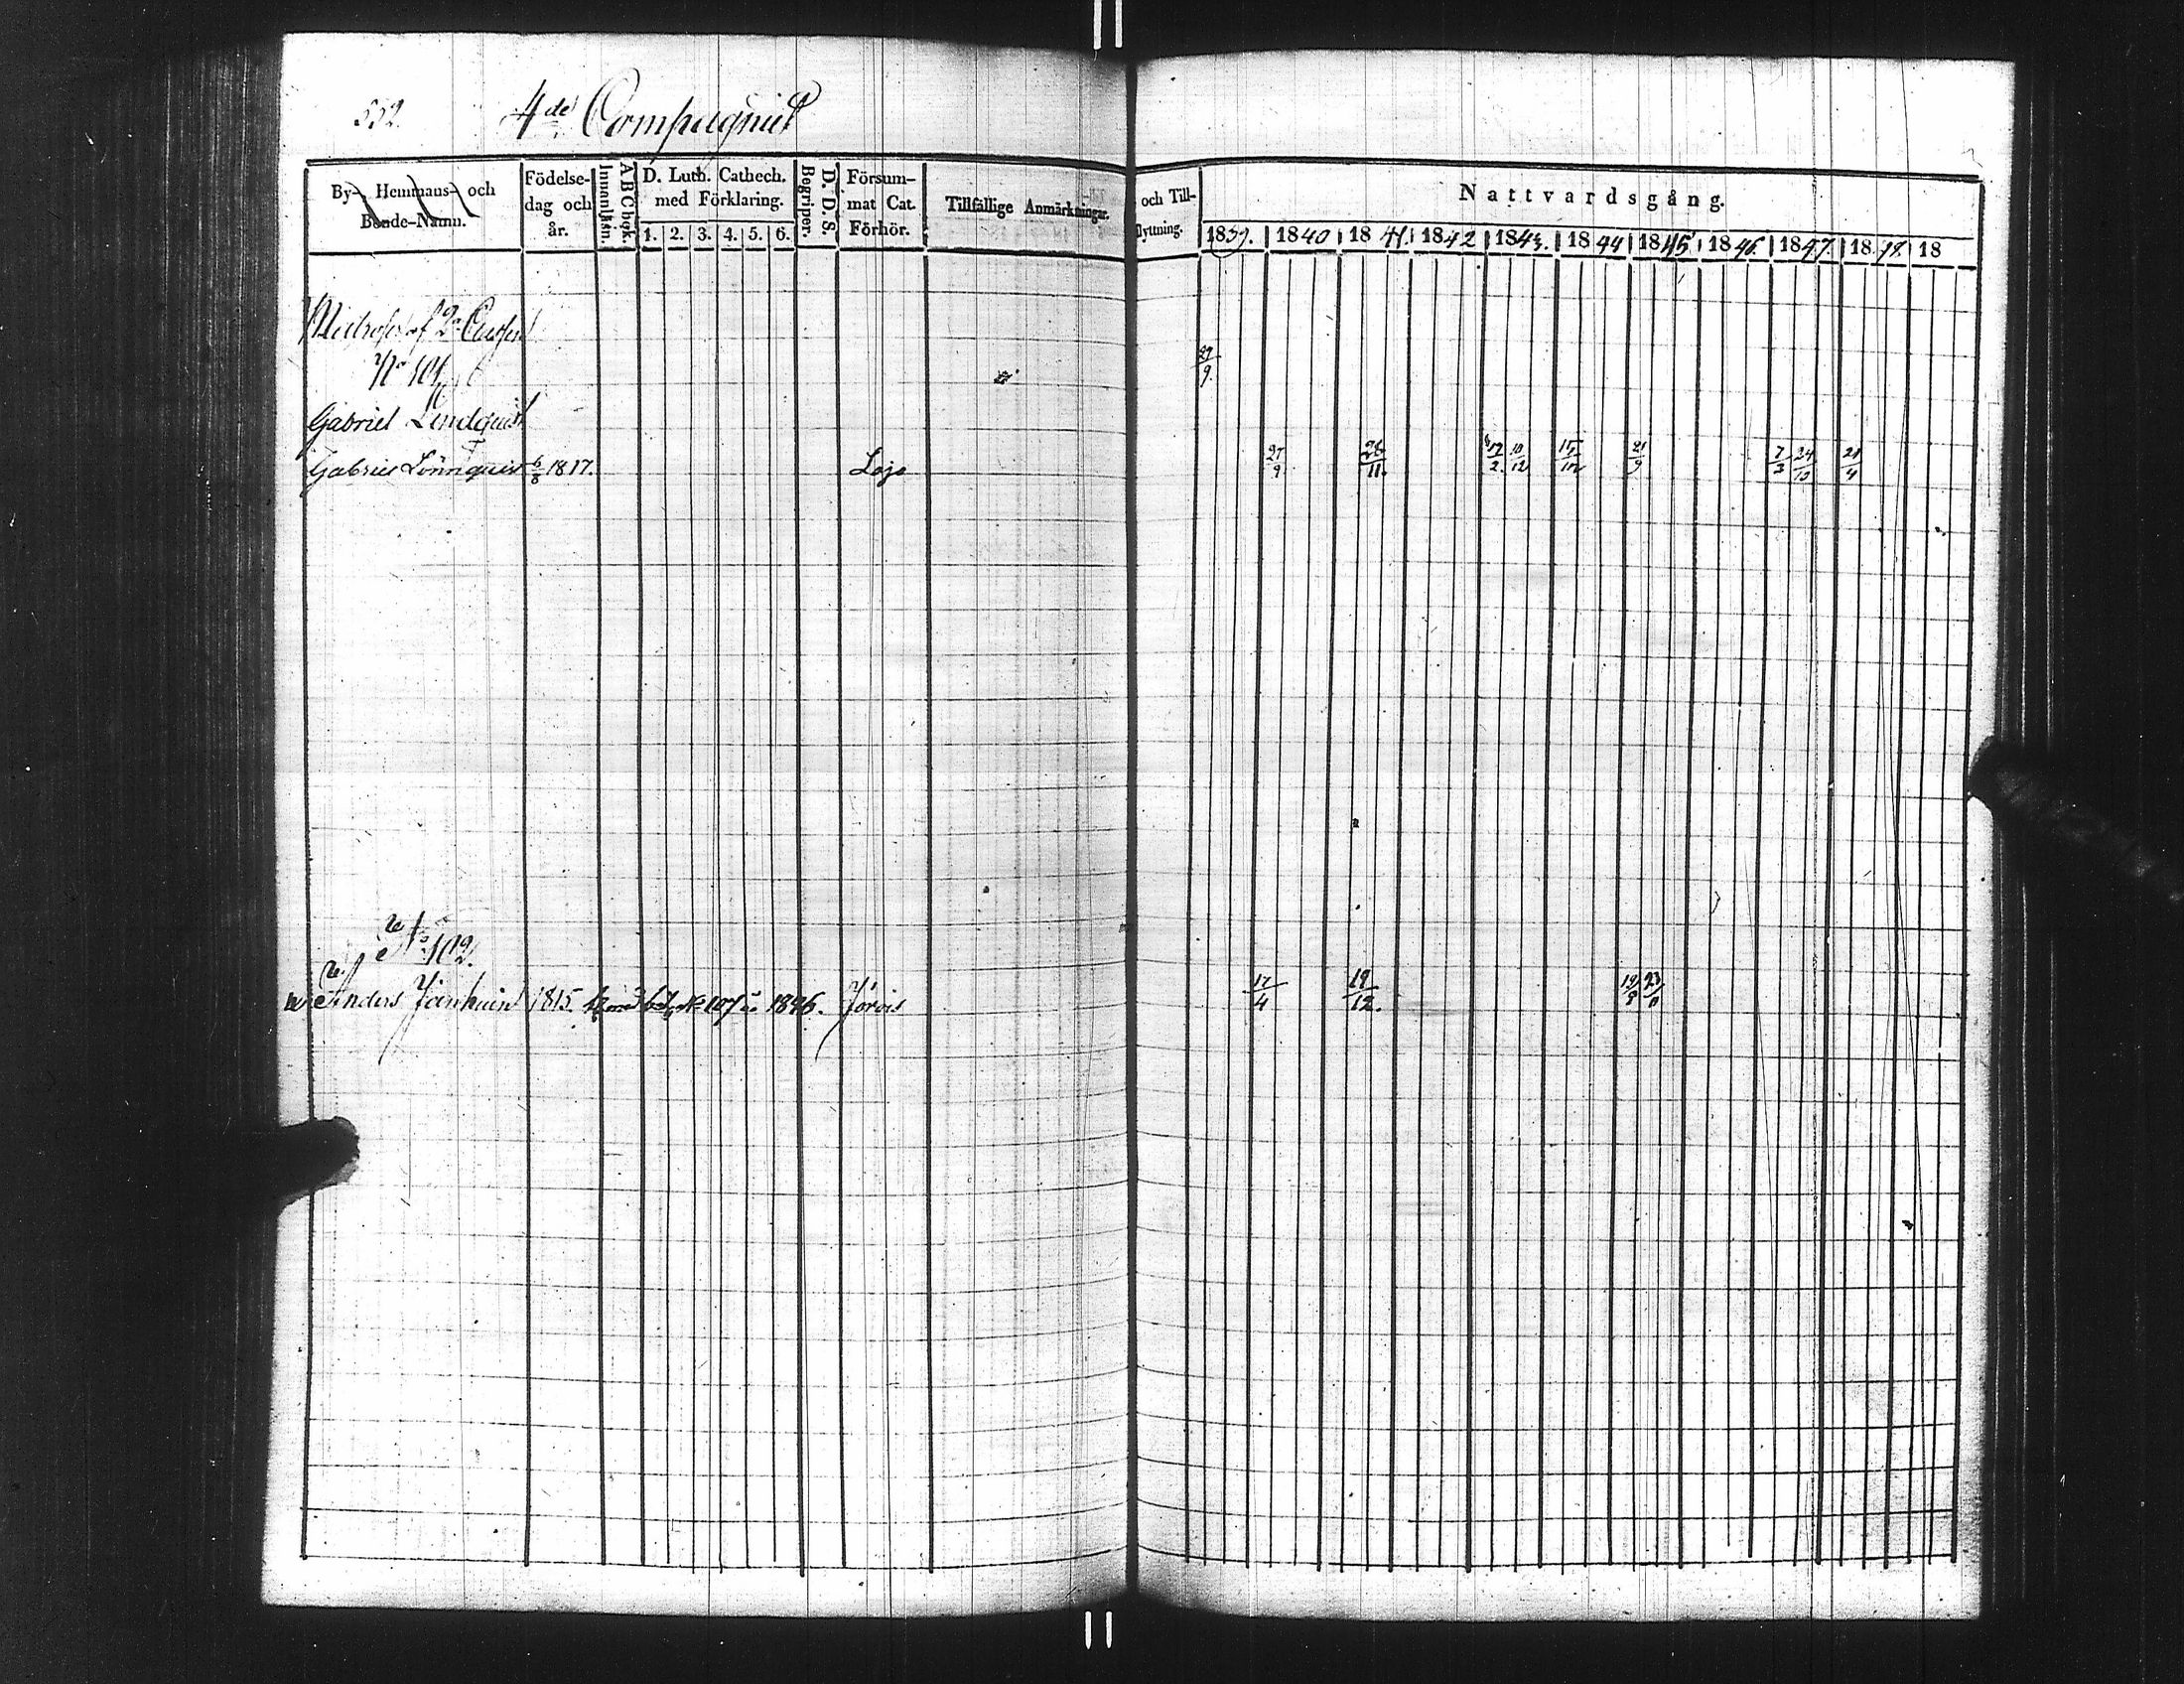 552.
4de Compagniet
By- Hemmans- och
Bonde-Namn.
Födelse-
dag och
år.
Innanläsn.
A B C bok.
D. Luth. Cathech.
med Förklaring.
1. 2. 3. 4. 5. 6.
Begriper.
D. D. S.
Försum-
mat Cat.
Förhör.
Tillfällige Anmärkningar.
och Till-
flyttning.
Nattvardsgång.
1839. 1840 1841. 1842 1843. 1844 1845 1846. 1847. 1848. 18
Matroser af 2a Classen
No 101
29/9.
Gabriel Lindquist
Gabriel Lönnquist 6/8 1817. Lojo 27/9 26/11. 17/2. 10/12 15/12 21/9 7/3 24/10 21/4
No 102.
Anders Jänhuin 1815. 107 1846. Jorois 17/4 19/12. 19/9 23/11